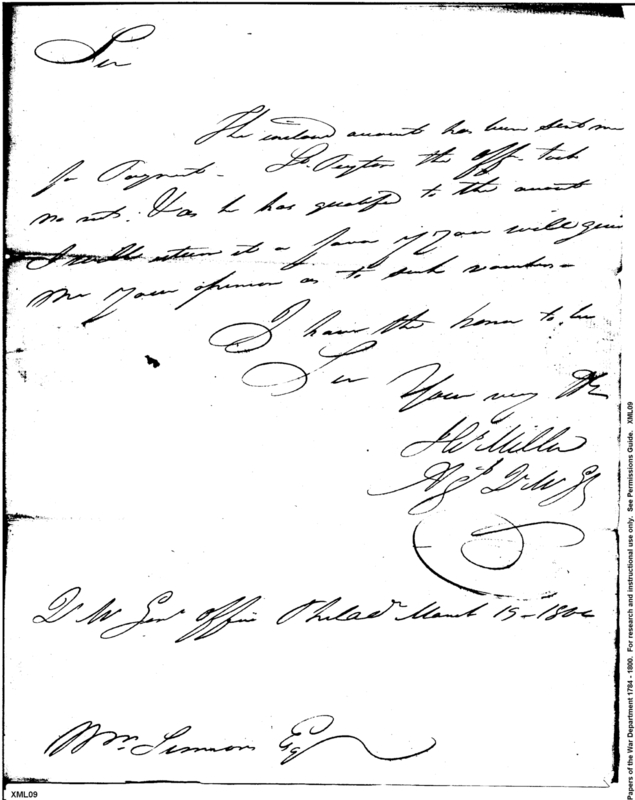 Sir
The inclosd account has been sent me
for Payment - Lt. Peyton the offr. took
no rets. & as he has qualifed to the account
I will esteem it a favor if you will give
me your opinion as to such vouchers -
I have the honor to be
Sir
Your very
Jn Wm Miller
Agt Qr M Gl
Qr M Genl office Philada March 19 - 1800
Wm Simmons Esq
Papers of the War Department 1784 - 1800. For research and instructional use only. See Permissions Guide. XML09
XML09